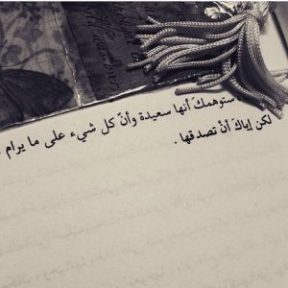 ستوهمكَ أنها سعيدة وأنّ كل شيء على ما يرام
لكن إياكَ أنْ تصدقها .